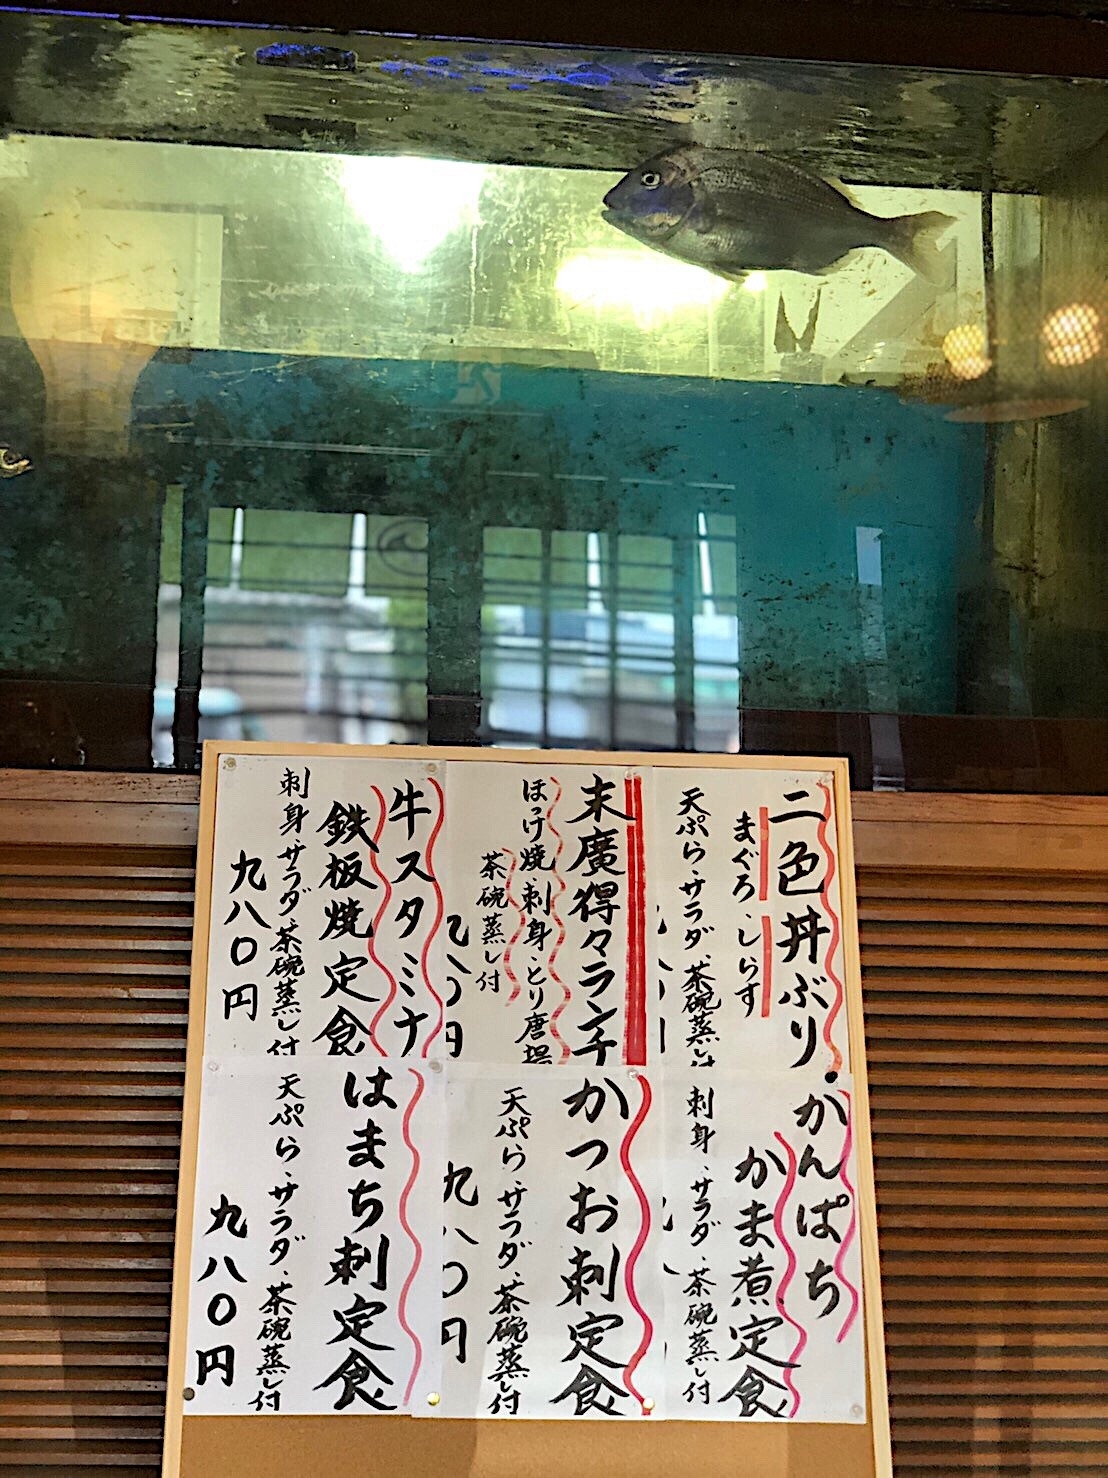 二色丼ぶり
まぐろ・しらす
天ぷら・サラダ、茶碗蒸し付
末廣得々ランチ
ほっけ焼・刺身・とり唐揚
茶碗蒸し付
九八〇円
牛スタミナ
鉄板焼定食
刺身・サラダ・茶碗蒸し付
九八〇円
かんぱち
かま煮定食
刺身・サラダ・茶碗蒸し付
かつお刺定食
天ぷら・サラダ・茶碗蒸し付
九八〇円
はまち刺定食
天ぷら・サラダ・茶碗蒸し付
九八〇円